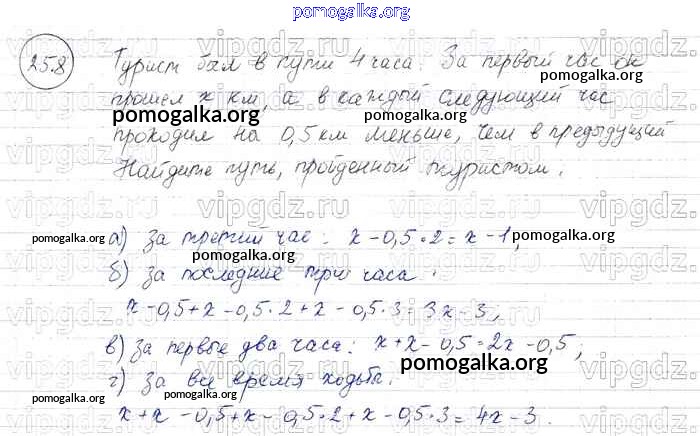 pomogalka.org
258
Турист был в пути 4 часа. За первый час он
прошел x км, а в каждый следующий час
проходил на 0,5 км меньше, чем в предыдущий
Найдите путь, пройденный туристом.
а) за третий час: x - 0,5 · 2 = x - 1;
б) за последние три часа:
x - 0,5 + x - 0,5 · 2 + x - 0,5 · 3 = 3x - 3;
в) за первые два часа: x + x - 0,5 = 2x - 0,5;
г) за все время ходьбы:
x + x - 0,5 + x - 0,5 · 2 + x - 0,5 · 3 = 4x - 3.
pomogalka.org
pomogalka.org
pomogalka.org
pomogalka.org
pomogalka.org
pomogalka.org
pomogalka.org
vipgdz.ru